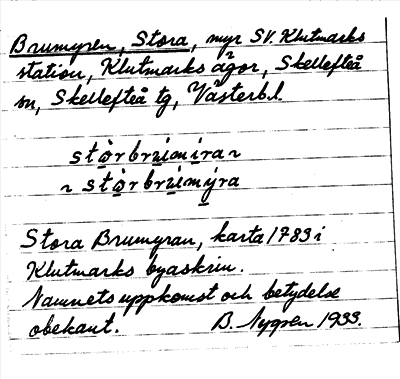 Brumyren, Stora, myr SV. Klutmarks
station, Klutmarks ägor, Skellefteå
sn, Skellefteå tg, Västerb.l.
stòrbrʉimira ~
~ stòrbrʉimýra
Stora Brumyran, karta 1783 i
Klutmarks byaskrin.
Namnets uppkomst och betydelse
obekant. B. Nygren 1933.